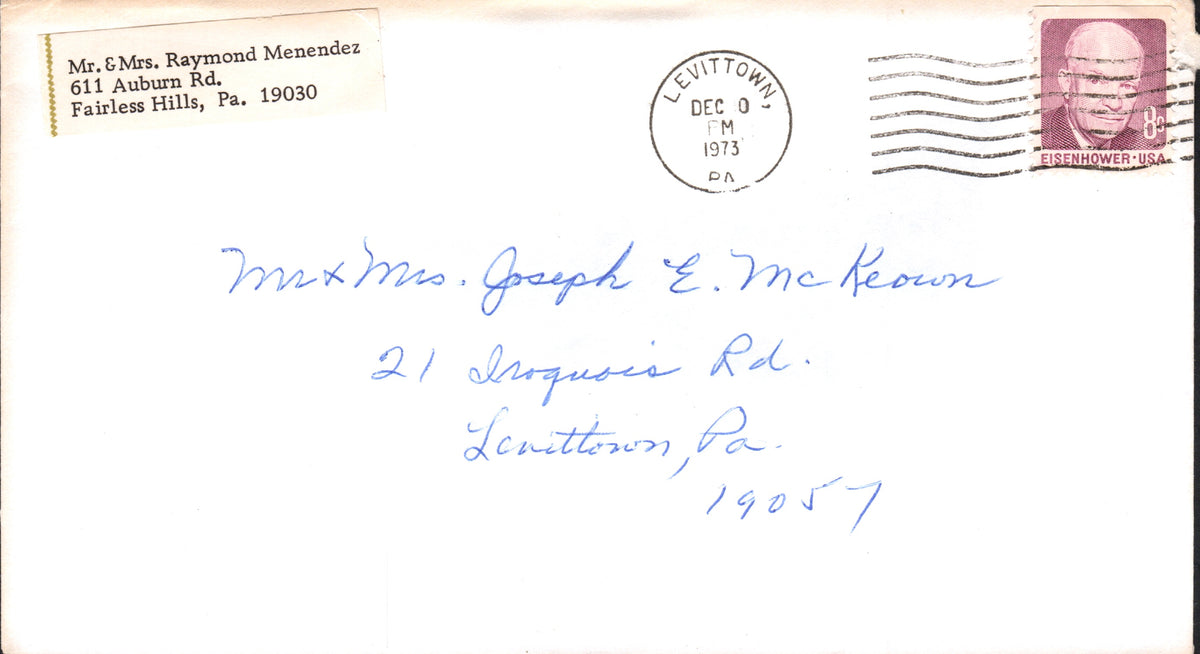 Mr. & Mrs. Raymond Menendez
611 Auburn Rd.
Fairless Hills, Pa. 19030
LEVITTOWN,
DEC 0
PM
1973
PA
8¢
EISENHOWER·USA
Mr & Mrs. Joseph E. McKeown
21 Iroquois Rd.
Levittown, Pa.
19057